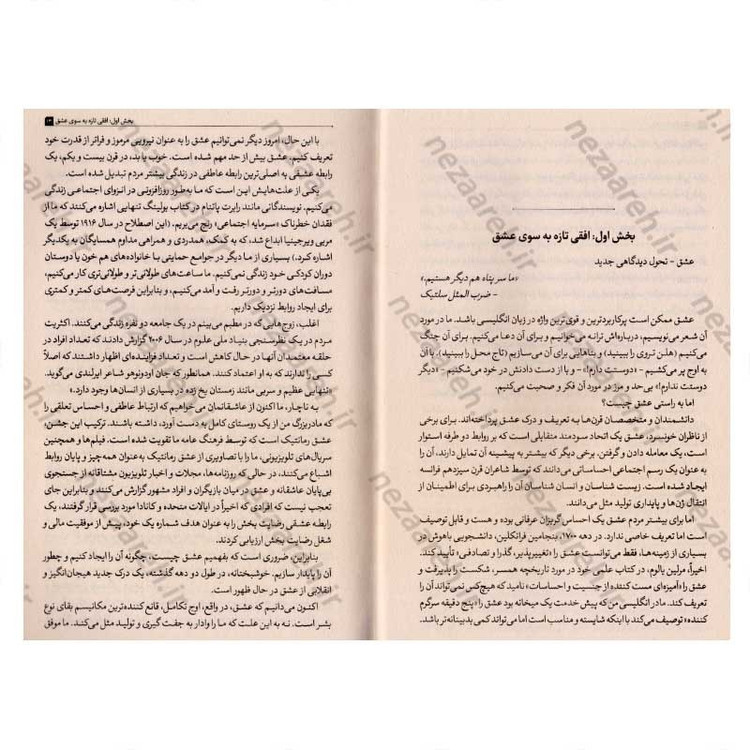 بخش اول: افقی تازه به سوی عشق
عشق - تحول دیدگاهی جدید
«ما سرپناه هم دیگر هستیم.»
- ضرب المثل سلتیک
عشق ممکن است پرکاربردترین و قوی‌ترین واژه در زبان انگلیسی باشد. ما در مورد
آن شعر می‌نویسیم، درباره‌اش ترانه می‌خوانیم و برای آن دعا می‌کنیم. برای آن جنگ
می‌کنیم (هلن تروی را ببینید) و بناهایی برای آن می‌سازیم (تاج محل را ببینید). با آن
به اوج پر می‌کشیم - «دوستت دارم!» - و یا از دست دادنش در خود می‌شکنیم - «دیگر
دوستت ندارم!» بی‌حد و مرز در مورد آن فکر و صحبت می‌کنیم.
اما به راستی عشق چیست؟
دانشمندان و متخصصان قرن‌ها به تعریف و درک عشق پرداخته‌اند. برای برخی
از ناظران خونسرد، عشق یک اتحاد سودمند متقابلی است که بر روابط دو طرفه استوار
است، یک معامله دادن و گرفتن. برخی دیگر که بیشتر به پیشینه آن تمایل دارند، آن را
به عنوان یک رسم اجتماعی احساساتی می‌دانند که توسط شاعران قرن سیزدهم فرانسه
ایجاد شده است. زیست شناسان و انسان شناسان آن را راهبردی برای اطمینان از
انتقال ژن‌ها و پایداری تولید مثل می‌دانند.
اما برای بیشتر مردم عشق یک احساس گریزان عرفانی بوده و هست و قابل توصیف
است اما تعریف خاصی ندارد. در دهه ۱۷۰۰، بنجامین فرانکلین، دانشجویی باهوش در
بسیاری از زمینه‌ها، فقط می‌توانست عشق را «تغییرپذیر، گذرا و تصادفی» تأیید کند.
اخیراً، مرلین یالوم، در کتاب علمی خود در مورد تاریخچه همسر، شکست را پذیرفت و
عشق را «آمیزه‌ای مست کننده از جنسیت و احساسات» نامید که هیچ‌کس نمی‌تواند آن را
تعریف کند. مادر انگلیسی من که پیش خدمت یک میخانه بود عشق را «پنج دقیقه سرگرم
کننده» توصیف می‌کند با اینکه شایسته و مناسب است اما می‌تواند کمی بدبینانه‌تر باشد.
بخش اول: افقی تازه به سوی عشق ۱۳
با این حال، امروز دیگر نمی‌توانیم عشق را به عنوان نیرویی مرموز و فراتر از قدرت خود
تعریف کنیم. عشق بیش از حد مهم شده است. خوب یا بد، در قرن بیست و یکم، یک
رابطه عشقی به اصلی‌ترین رابطه عاطفی در زندگی بیشتر مردم تبدیل شده است.
یکی از علت‌هایش این است که ما به‌طور روزافزونی در انزوای اجتماعی زندگی
می‌کنیم. نویسندگانی مانند رابرت پاتنام در کتاب بولینگ تنهایی اشاره می‌کنند که ما از
فقدان خطرناک «سرمایه اجتماعی» رنج می‌بریم. (این اصطلاح در سال ۱۹۱۶ توسط یک
مربی ویرجینیا ابداع شد، که به کمک، همدردی و همراهی مداوم همسایگان به یکدیگر
اشاره کرد.) بسیاری از ما دیگر در جوامع حمایتی با خانواده‌های هم خون یا دوستان
دوران کودکی خود زندگی نمی‌کنیم. ما ساعت‌های طولانی‌تر و طولانی‌تری کار می‌کنیم،
مسافت‌های دورتر و دورتر رفت و آمد می‌کنیم، و بنابراین فرصت‌های کمتر و کمتری
برای ایجاد روابط نزدیک داریم.
اغلب، زوج‌هایی که در مطبم می‌بینم در یک جامعه دو نفره زندگی می‌کنند. اکثریت
مردم در یک نظرسنجی بنیاد ملی علوم در سال ۲۰۰۶ گزارش دادند که تعداد افراد در
حلقه معتمدان آنها در حال کاهش است و تعداد فزاینده‌ای اظهار داشتند که اصلاً
کسی را ندارند که به او اعتماد کنند. همانطور که جان اودونوهو شاعر ایرلندی می‌گوید.
«تنهایی عظیم و سربی مانند زمستان یخ زده در بسیاری از انسان‌ها وجود دارد.»
به ناچار، ما اکنون از عاشقانمان می‌خواهیم که ارتباط عاطفی و احساس تعلقی را
که مادربزرگ من از یک روستای کامل به دست آورد، داشته باشند. ترکیب این جشن،
عشق رمانتیک است که توسط فرهنگ عامه ما تقویت شده است. فیلم‌ها و همچنین
سریال‌های تلویزیونی، ما را با تصاویری از عشق رمانتیک به عنوان همه‌چیز و پایان روابط
اشباع می‌کنند، در حالی که روزنامه‌ها، مجلات و اخبار تلویزیون مشتاقانه از جستجوی
بی‌پایان عاشقانه و عشق در میان بازیگران و افراد مشهور گزارش می‌کنند و بنابراین جای
تعجب نیست که افرادی که اخیراً در ایالات متحده و کانادا مورد بررسی قرار گرفتند، یک
رابطه عشقی رضایت بخش را به عنوان هدف شماره یک خود، پیش از موفقیت مالی و
شغل رضایت بخش ارزیابی کردند.
بنابراین، ضروری است که بفهمیم عشق چیست، چگونه آن را ایجاد کنیم و چطور
آن را پایدار سازیم. خوشبختانه، در طول دو دهه گذشته، یک درک جدید هیجان‌انگیز و
انقلابی از عشق در حال ظهور است.
اکنون می‌دانیم که عشق، در واقع، اوج تکامل، قانع کننده‌ترین مکانیسم بقای نوع
بشر است. نه به این علت که ما را وادار به جفت گیری و تولید مثل می‌کند. ما موفق
nezaareh.ir